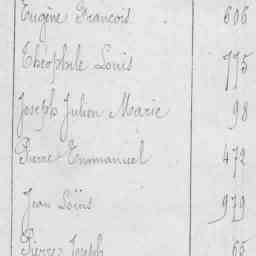 Eugène François 606
Théophile Louis 775
Joseph Julien Marie 98
Pierre Emmanuel 472
Jean Loüis 979
Pierre Joseph 65